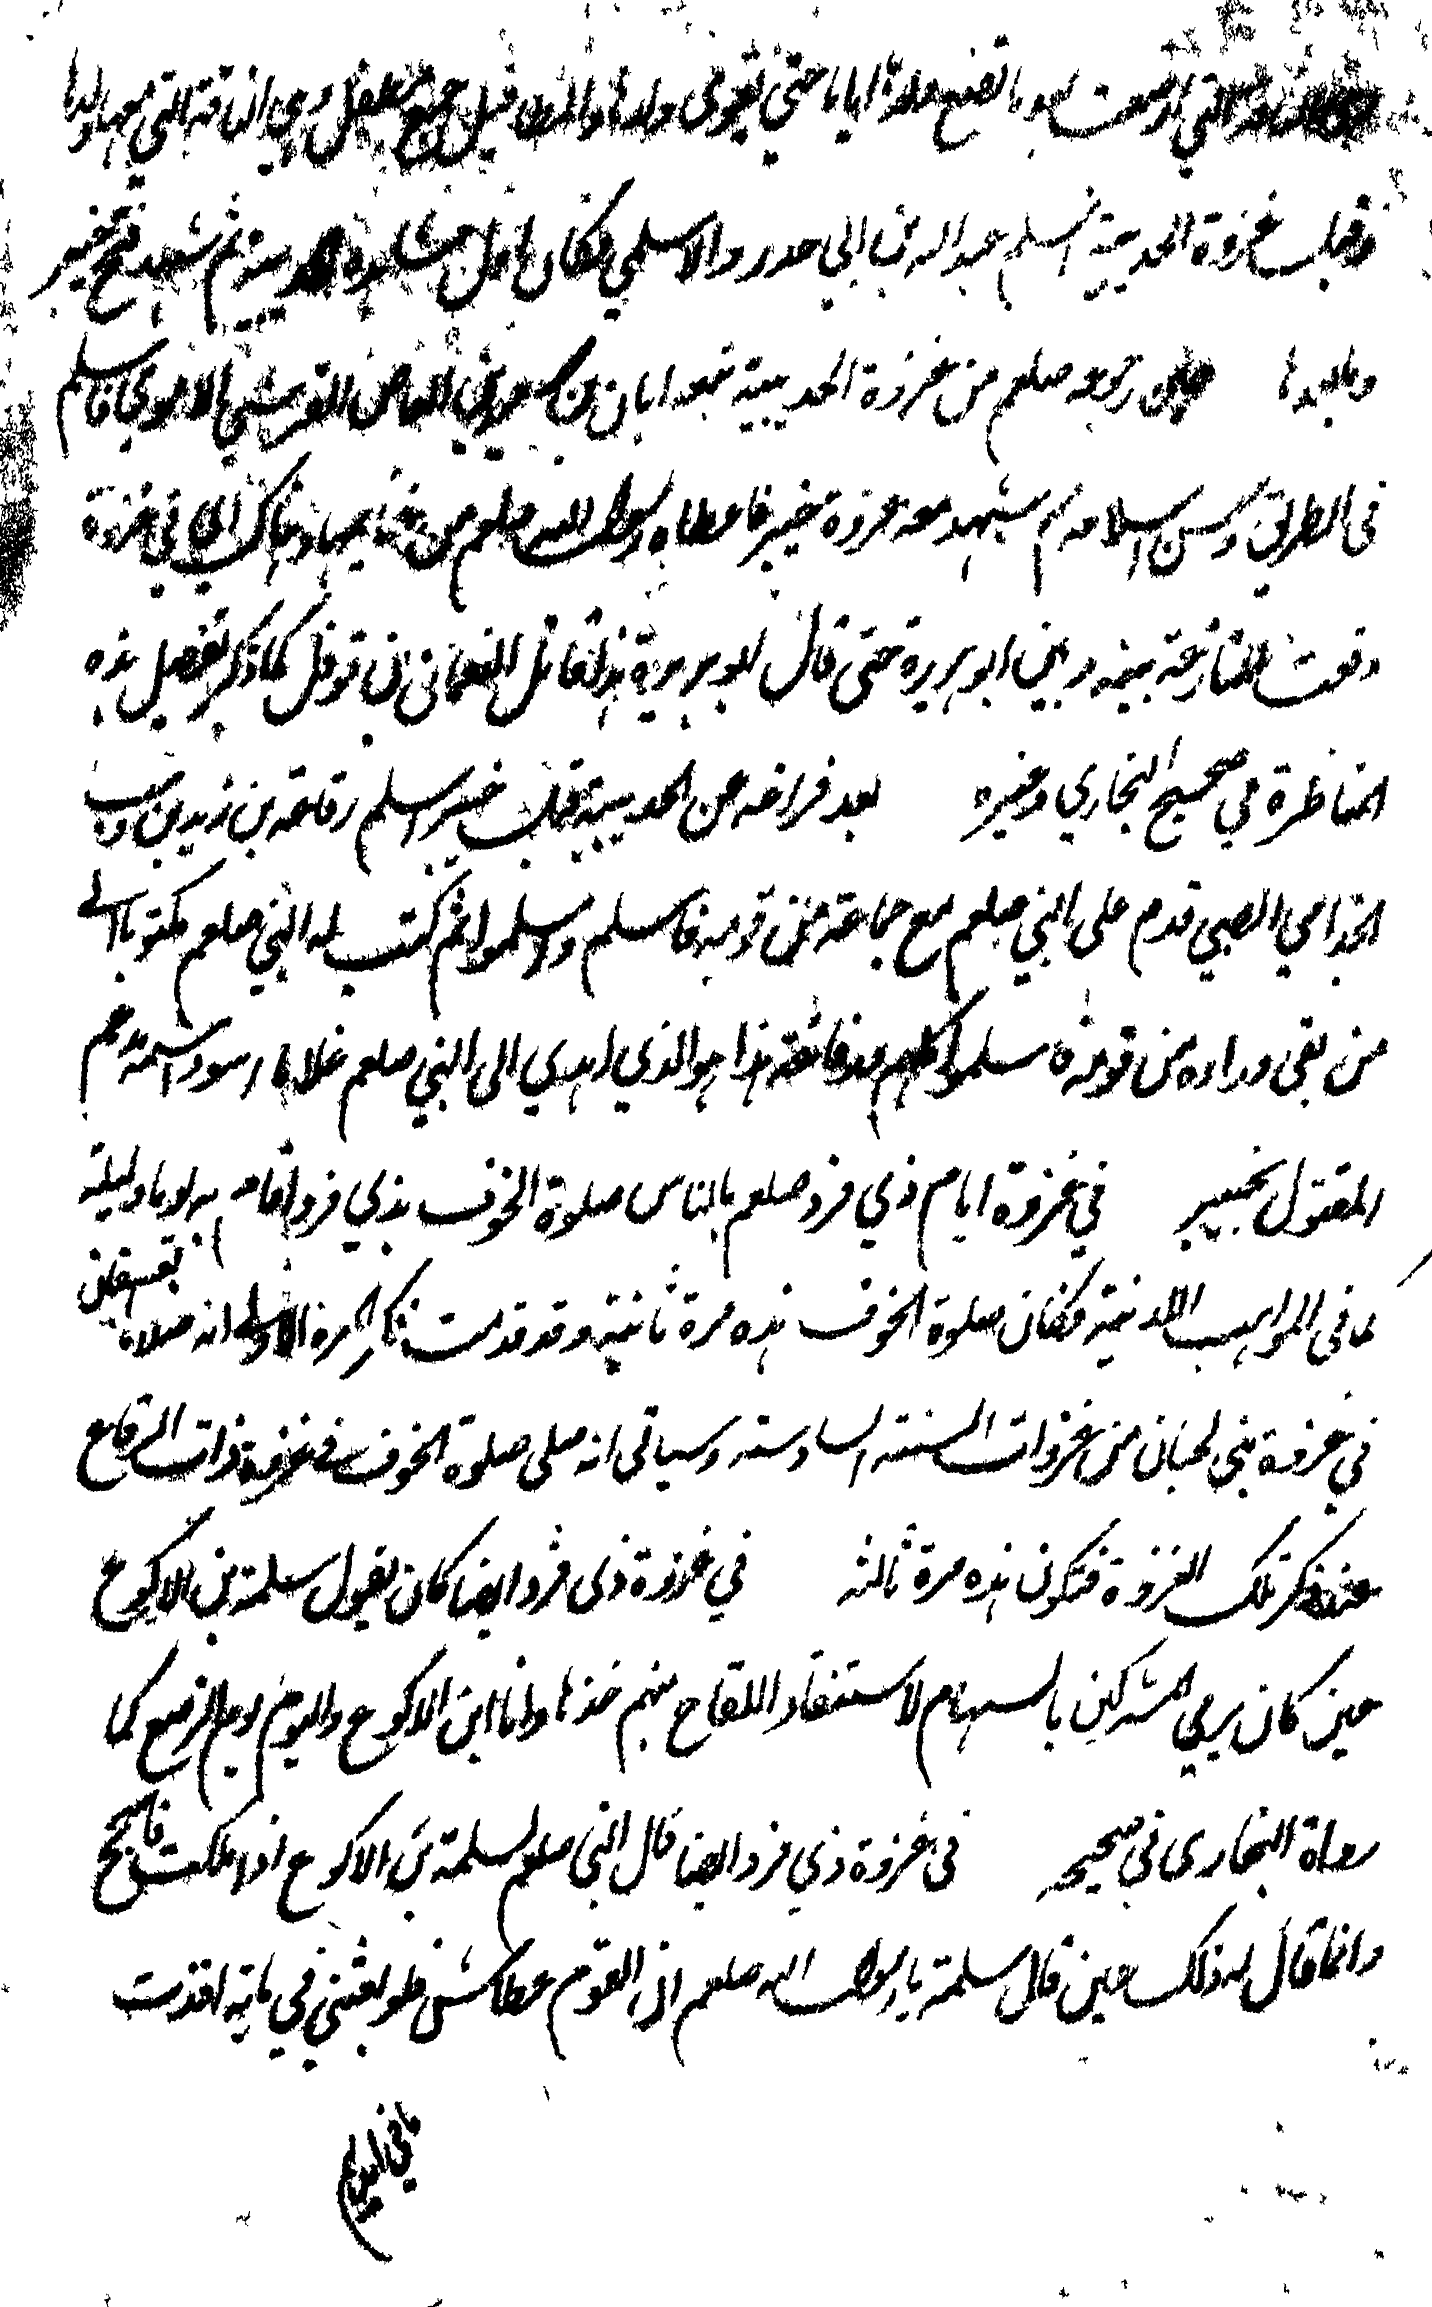 التي وضعت ولدها اياما حتى يقوى ولدها والمطافيل جمع مطفل وهي الناقة التي معها ولدها
وقبل غزوة الحديبية اسلم عبدالله بن ابي حدرد الاسلمي فكان اول مشاهده الحديبية ثم شهد فتح خيبر
وما بعدها حين رجع صلعم من غزوة الحديبية تبعه ابان بن سعيد بن العاص القرشي الاموي فاسلم
في الطريق وحسن اسلامه ثم شهد معه غزوة خيبر فاعطاه رسول الله صلعم من غنايمها وهناك اي في غزوة
وقعت المنازعة بينه وبين ابو هريرة حتى قال ابو هريرة هذا قاتل النعمان بن قوفل كما ذكر تفصيل هذه
المناظرة في صحيح البخاري وغيره بعد فراغه من الحديبية قبل خيبر اسلم رفاعة بن زيد بن وهب
الجذامي الضبي قدم على النبي صلعم مع جماعة من قومه فاسلم واسلموا ثم كتب له النبي صلعم مكتوبا الى
من بقي وراءه من قومه فاسلموا كلهم ورفاعة هذا هو الذي اهدي الى النبي صلعم غلاما اسود اسمه مدعم
المقتول بخيبر في غزوة ايام ذي قرد صلعم بالناس صلوة الخوف بذي قرد اقام به يوما وليلة
كما في المواهب اللدنية فكان صلوة الخوف هذه مرة ثانية وقد قدمت ذكر المرة الاولى انه صلاه بعسفان
في غزوة بني لحيان من غزوات السنة السادسة وسياتي انه صلى صلوة الخوف في غزوة ذات الرقاع
عند ذكر تلك الغزوة فتكون هذه مرة ثالثة في غزوة ذي قرد ايضا كان يقول سلمة بن الاكوع
حين كان يرمي المشركين بالسهام لاستنقاذ اللقاح منهم خذها وانا ابن الاكوع واليوم يوم الرضع كما
رواه البخاري في صحيحه في غزوة ذي قرد ايضا قال النبي صلعم لسلمة بن الاكوع اذا ملكت فاسجح
وانما قال له ذلك حين قال سلمة يا رسول الله صلعم ان القوم عطاش فلو بعثتني في ماية لقذت